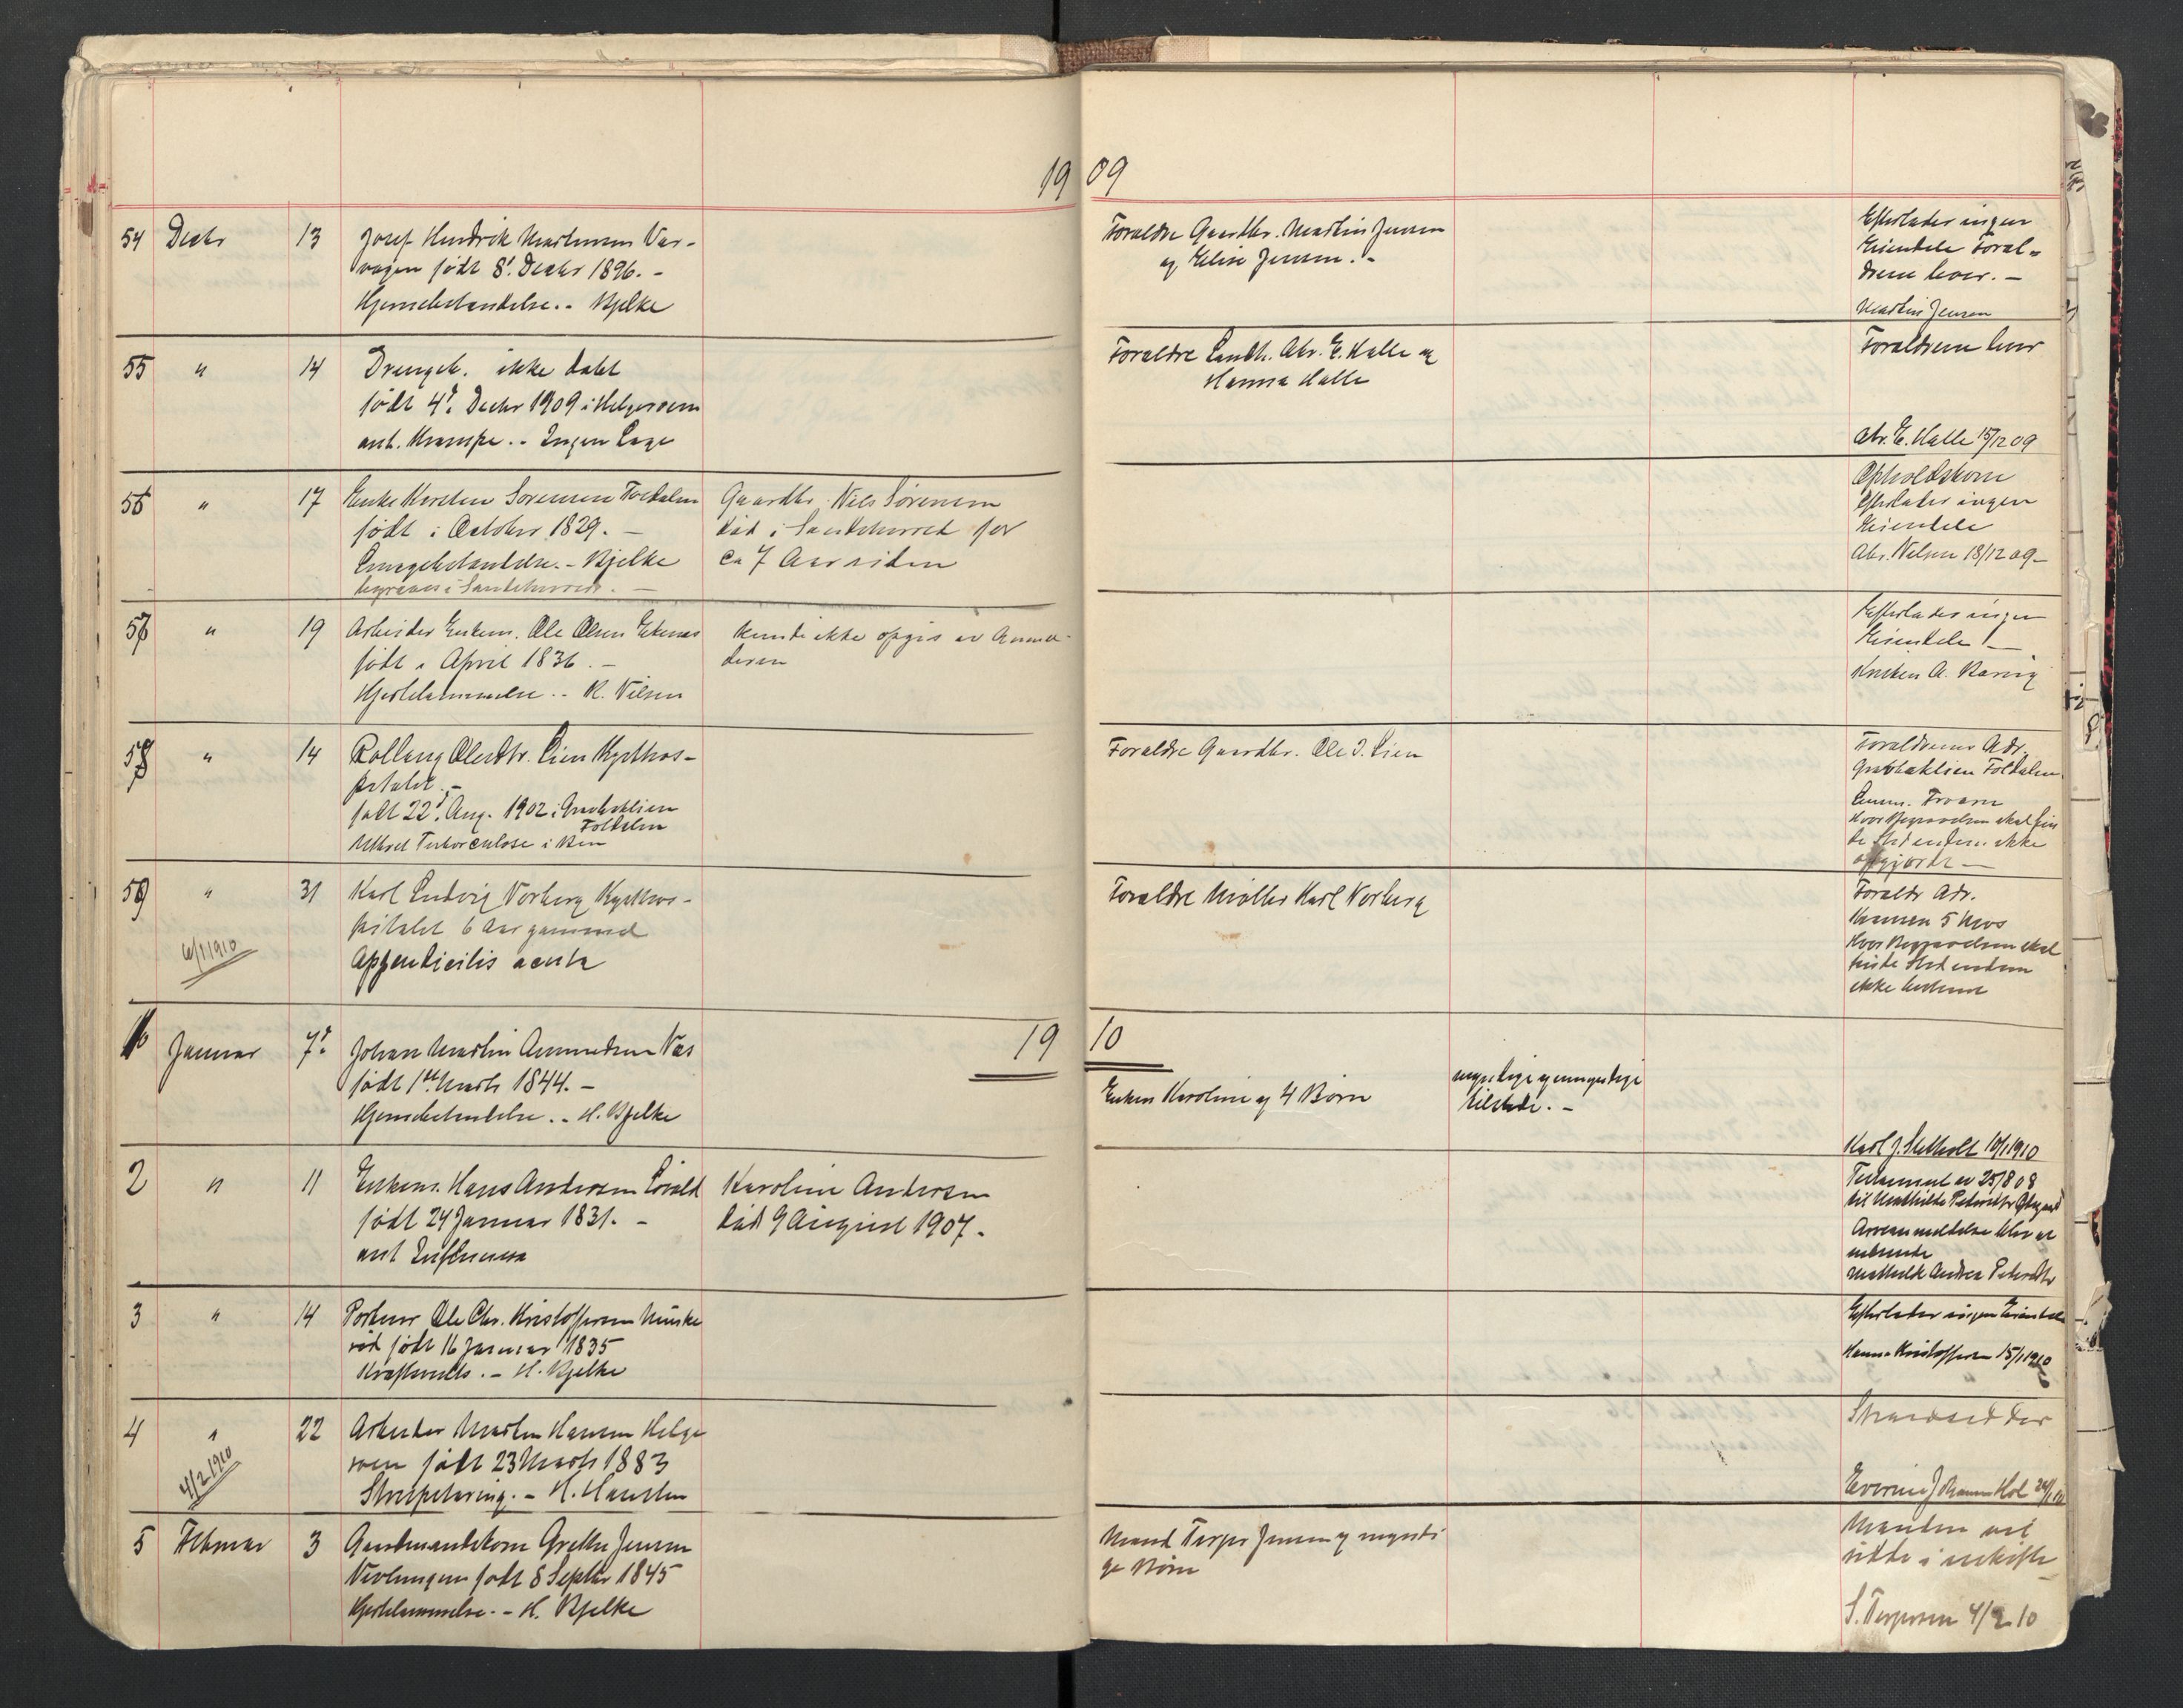 19 09
54 Decbr 13 Josef Hendrik Martinsen Var-
vagen født 8'. Decbr 1896. -
Hjernebetændelse. - Bjelke
Foraldre Gaardbr. Martin Jensen
og Elise Jensen. -
Efterlader ingen
Eiendele Foral-
drene lever. -
Martin Jensen
55 " 14 Drengeb. ikke døbt
født 4'. Decbr 1909 i Helgeroen
ant. Krampe. - Ingen Læge
Foraldre Landh. Abr. E. Halle og
Hanna Halle
Foraldrene lever
Abr. E. Halle 15/12 09
56 " 17 Enke Karsten Sørensen Foldalen
født i October 1829. -
Lungebetændelse. - Bjelke
begraves i Sandeherred. -
Gaardbr. Nils Sørensen
død i Sandeherred for
ca 7 Aar siden
Opholdskone
Efterlader ingen
Eiendele
Abr. Nilsen 18/12 09 -
57 " 19 Arbeider Enkem. Ole Olsen Ekenes
født i April 1836. -
Hjertelammelse. - K. Nilsen
Kunde ikke opgis av Anmel-
deren
Efterlader ingen
Eiendele! -
Knut A. Barvig
58 " 14 Olesdtr. Lien Kysthos-
pitalet. -
født 22'. Aug. 1902 i Grubeklien
Foldalen
Tuberculose i Ben
Foraldre Gaardbr. Ole I. Lien
Foraldrenes Adr.
Grubeklien Foldalen
Hvor Begravelsen skal fin
de Sted endnu ikke
afgjordt -
59 " 31 Karl Ludvig Norberg Kysthos-
pitalet 6 Aar gammel
Appendicitis acuta
6/1 1910
Foraldre Møller Karl Norberg
Foraldr Adr.
Hvor Begravelsen skal
finde Sted endnu
ikke bestemt
19 10
1 Januar 7'. Johan Martin Amundsen Næs
født 1ste Marts 1844. -
Hjernebetændelse. - H. Bjelke
Enken Karoline og 4 Børn
myndige og umyndige
tilstede. -
Karl J. Statholt 10/1 1910
2 " 11 Enkem. Hans Andersen
født 24 Januar 1831. -
ant Influensa
Karoline Andersen
død 9 August 1907. -
Testament av 25/8 08
til Mathilde Petersdtr
Arveanmeldelse blev
Mathilde Andrea Petersdtr
3 " 14 Portner Ole Chr. Kristoffersen Munke
rød født 16 Januar 1835
Kræftsvulst. - H. Bjelke
Efterlader ingen Eiendele
Hanna Kristoffersen 15/1 1910
4 " 22 Arbeider Martin Hansen Helge
roen født 23 Marts 1883
Strupetæring. - H. Hansten
4/2 1910
Strandsidder
Johannes Hol 24/1 10
5 Februar 3 Gaardmandskone Grethe Jensen
Nevlungen født 8 Septbr 1845
Hjertelammelse. - H. Bjelke
Mand Terger Jensen og myndi
ge Børn
Manden vil
sidde i uskifte -
S. Tergersen 4/2 10